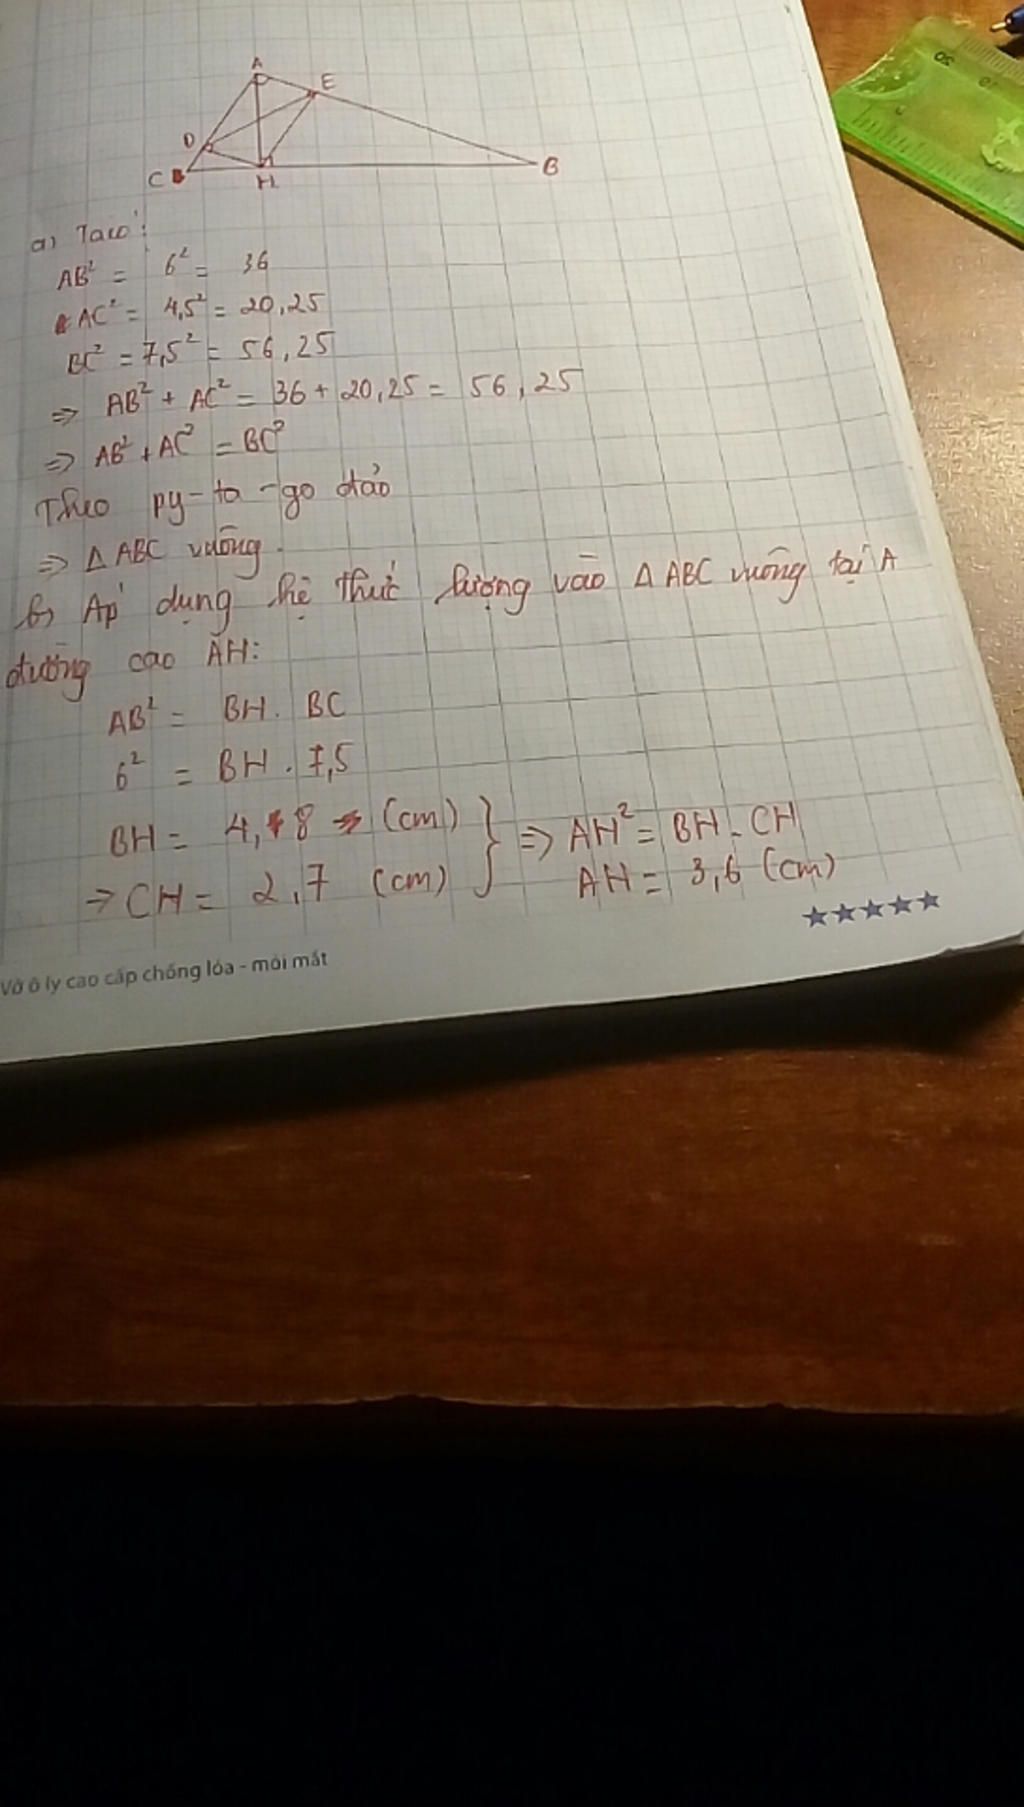 A
E
D
C
H
B
a) Ta có:
AB² = 6² = 36
AC² = 4,5² = 20,25
BC² = 7,5² = 56,25
=> AB² + AC² = 36 + 20,25 = 56,25
=> AB² + AC² = BC²
Theo py-ta-go đảo
=> Δ ABC vuông.
b) Áp dụng hệ thức lượng vào Δ ABC vuông tại A
đường cao AH:
AB² = BH . BC
6² = BH . 7,5
BH = 4,8 (cm) } => AH² = BH . CH
=> CH = 2,7 (cm) AH = 3,6 (cm)
★★★★★
Vở ô ly cao cấp chống lóa - mỏi mắt